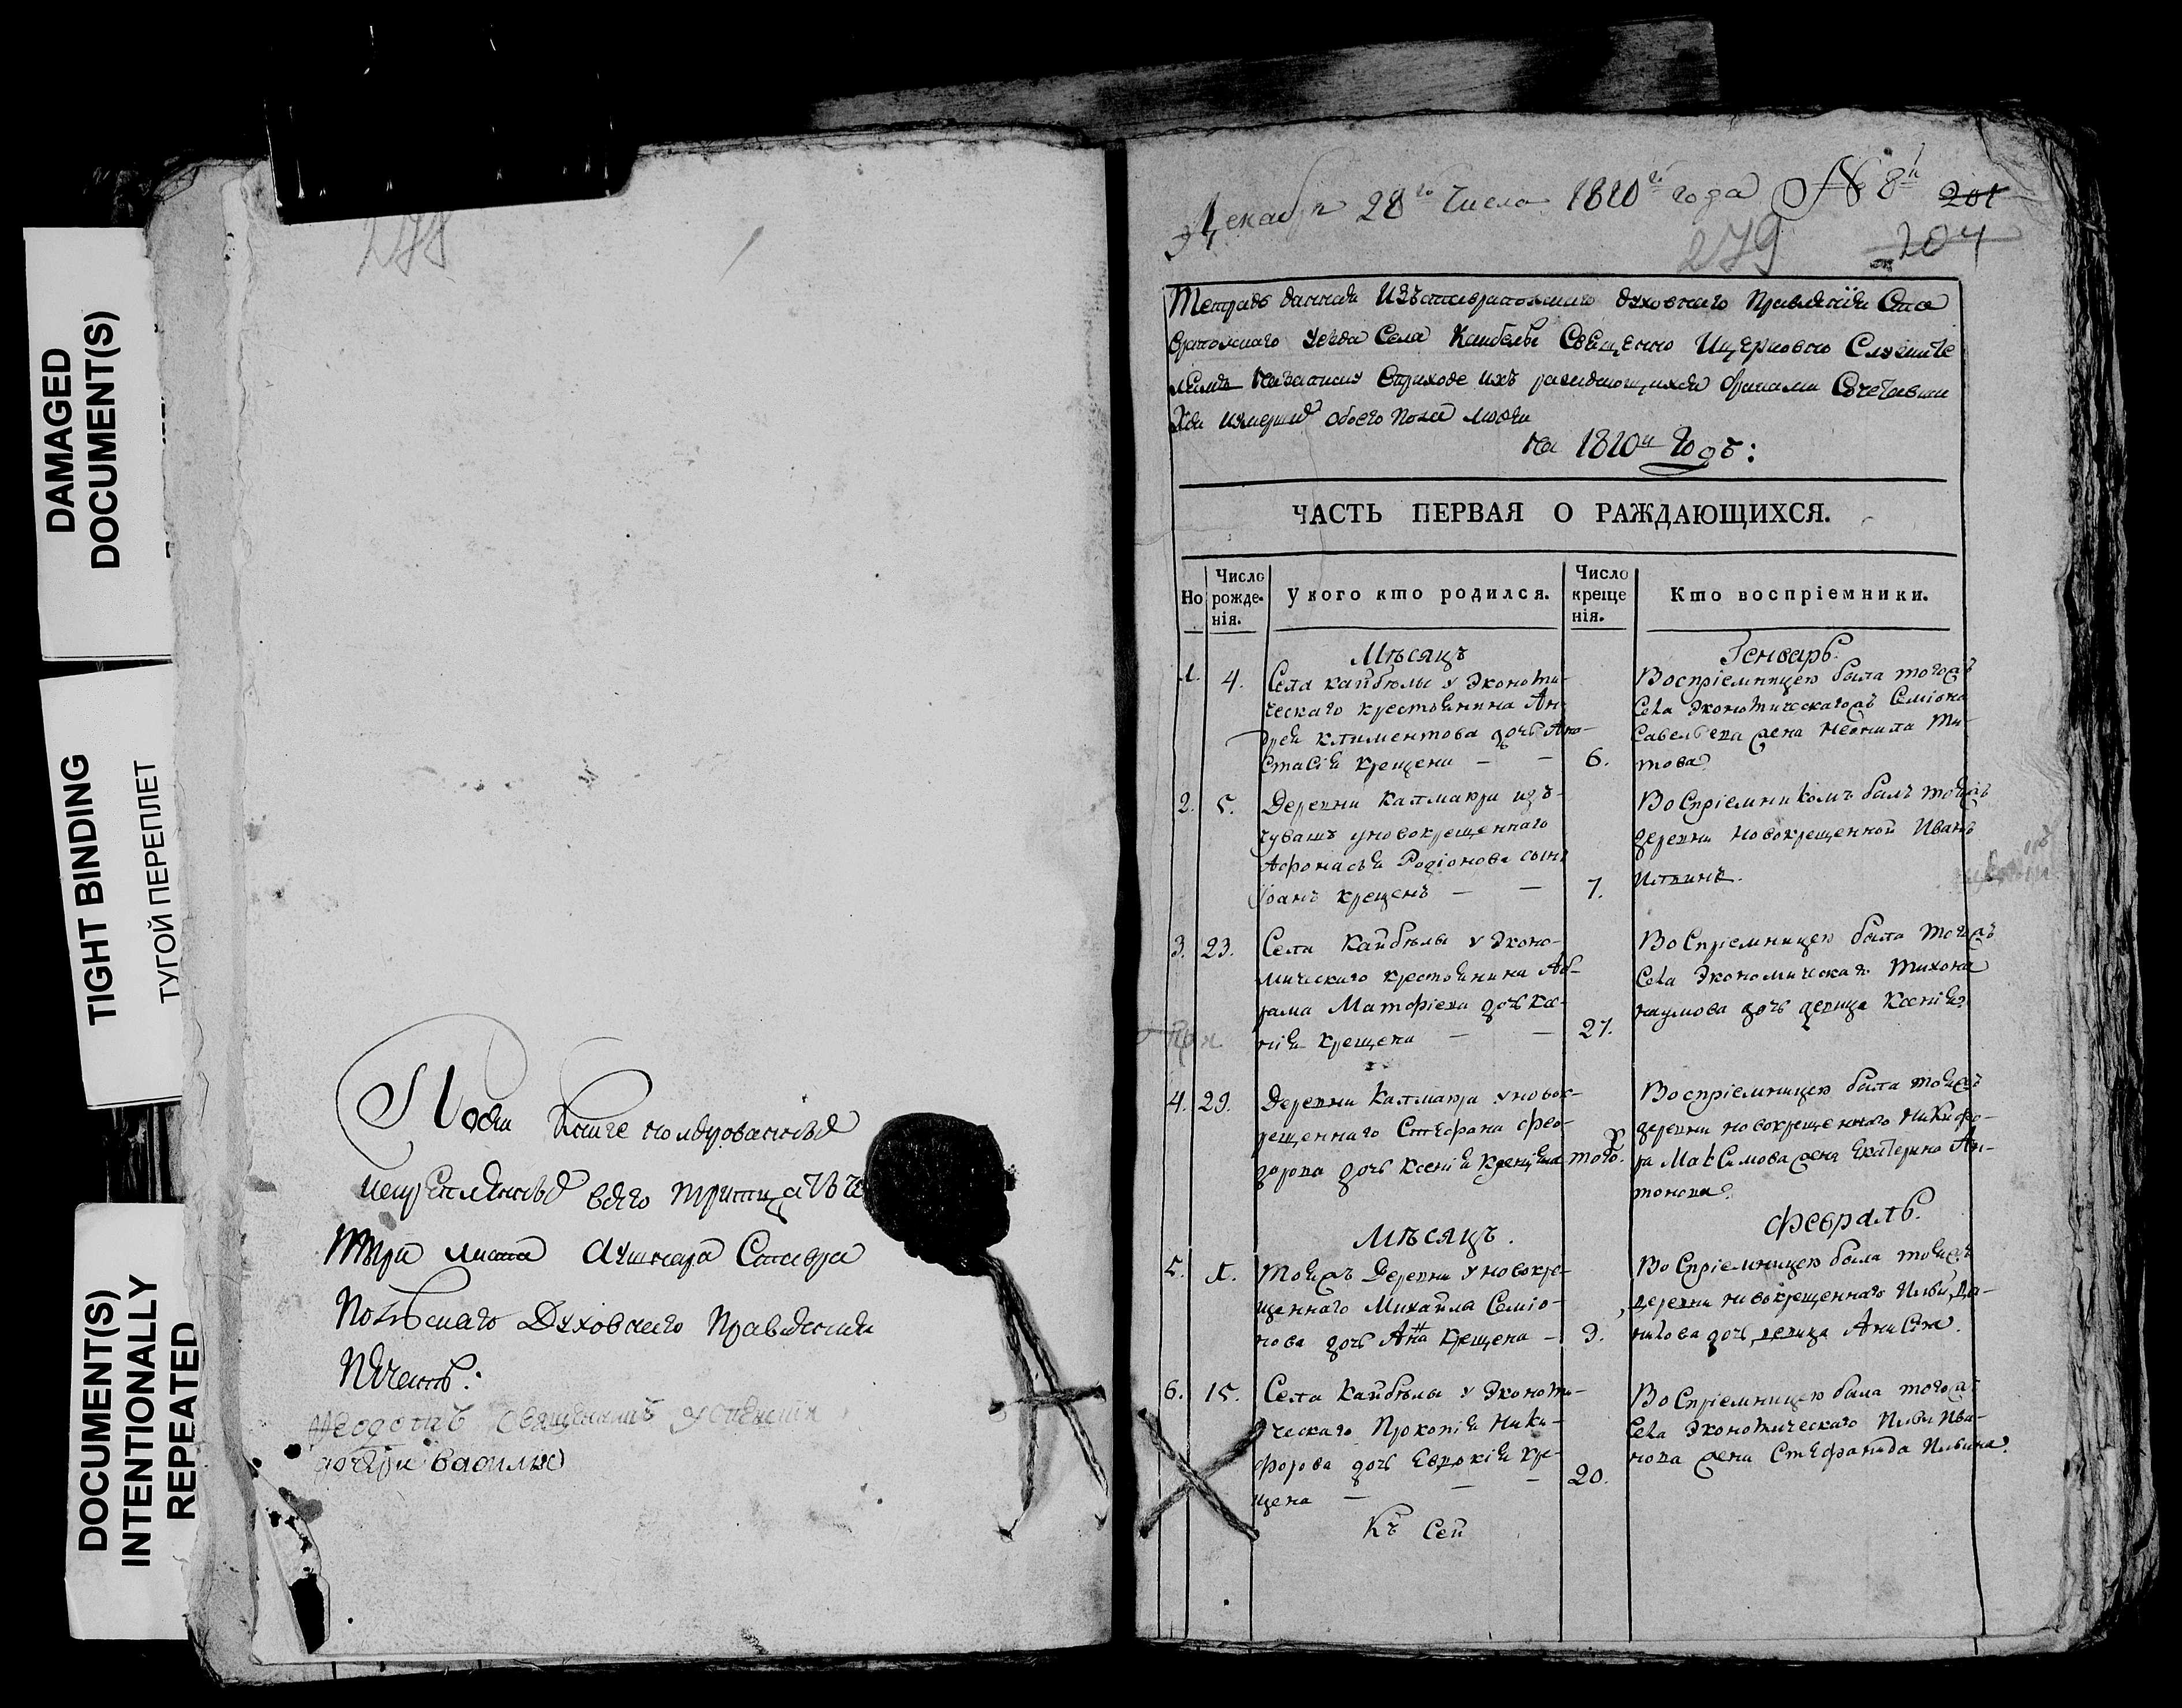 DAMAGED
DOCUMENT(S)
TIGHT BINDING
ТУГОЙ ПЕРЕПЛЕТ
DOCUMENT(S)
INTENTIONALLY
REPEATED
278
По сей книге
всего тритцать
три листа Ставро
польскаго Духовнаго Правления
Печать:
Декабря 28го Числа 1810го года № 8й 201
279 204
Тетрадь данная Изъ ставропольскаго духовнаго Правления Ста
вропольскаго уезда Села Каибелы Священно Ицерковно Служите
лямъ Назапись Вприходе ихъ раждающихся браками Сочетавши
хся иумерших обоего пола людей
на 1810й Годъ:
ЧАСТЬ ПЕРВАЯ О РАЖДАЮЩИХСЯ.
Но
Число рожденія.
У кого кто родился.
Число крещенія.
Кто воспріемники.
Мѣсяцъ Генварь.
1. 4. Села кайбѣлы у Экономи-
ческаго крестьянина Ан-
дрея климентова дочь Ана-
стасія крещена — — 6.
Воспріемницею была тогожъ
Села Экономическагожъ Семіона
Савельева жена Неонила Ти-
това
2. 5. Деревни Калмаюри изъ-
чувашъ уновокрещеннаго
Афонасья Родіонова сынъ
Іоанъ крещенъ — — 7.
Воспріемникомъ былъ тойжъ
деревни новокрещенной Иванъ
Ильинъ.
3. 23. Села Кайбѣлы у Эконо-
мическаго крестьянина Аб-
рама Матфіева дочь Ксе-
нія крещена — — 27.
Воспріемницею была тогожъ
Села Экономическаго Тихона
наумова дочь девица Ксенія
4. 29. Деревни Калмаюра уновок-
рещеннаго Стефана Фео-
дорова дочь Ксенія крещена того.
Воспріемницею была тойжъ
деревни новокрещеннаго Никифо-
ра Максимова жена Екатерина Ан-
тонова.
Мѣсяцъ. Февраль.
5. 1. Тойжъ Деревни уновокре-
щеннаго Михайла Семіо-
нова дочь Анна крещена — 9.
Воспріемницею была тойжъ
деревни новокрещеннаго Ильи Да-
нилова дочь девица Анисья.
6. 15. Села Кайбѣлы у Экономи-
ческаго Прокопія Ники-
форова дочь Евдокія кре-
щена — — — 20.
Воспріемницею была тогожъ
Села Экономическаго Ильи Ива-
нова жена Стефанида Ильина.
Къ Сей